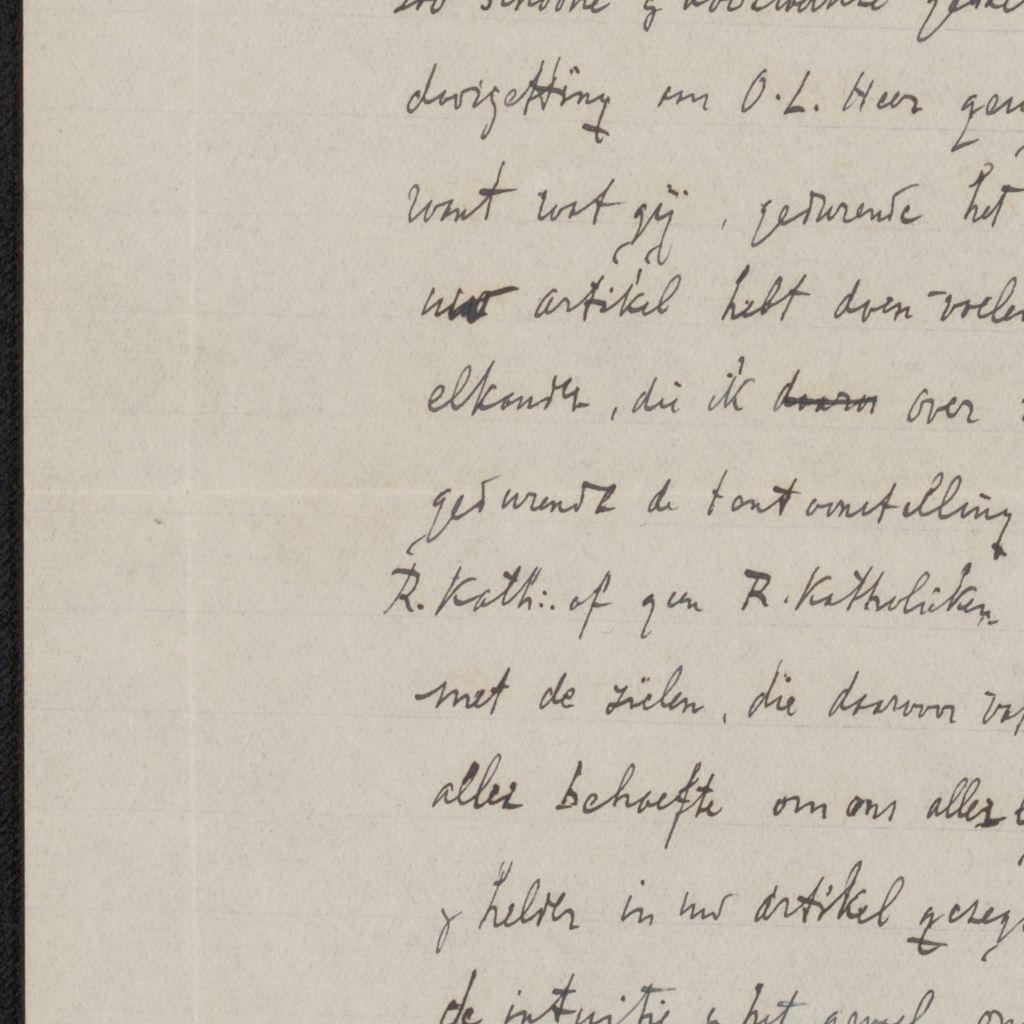 zoo schoone &
aan O.L. Heer
want wat gij, gedurende het
uw artikel hebt doen voelen
elkander, die ik daarov over
gedurende de tentoonstelling
R. Kath:. of geen R. Katholieken
met de zielen, die daarvoor
aller behoefte om ons aller
& helder in uw artikel
de intuitie & het gevoel